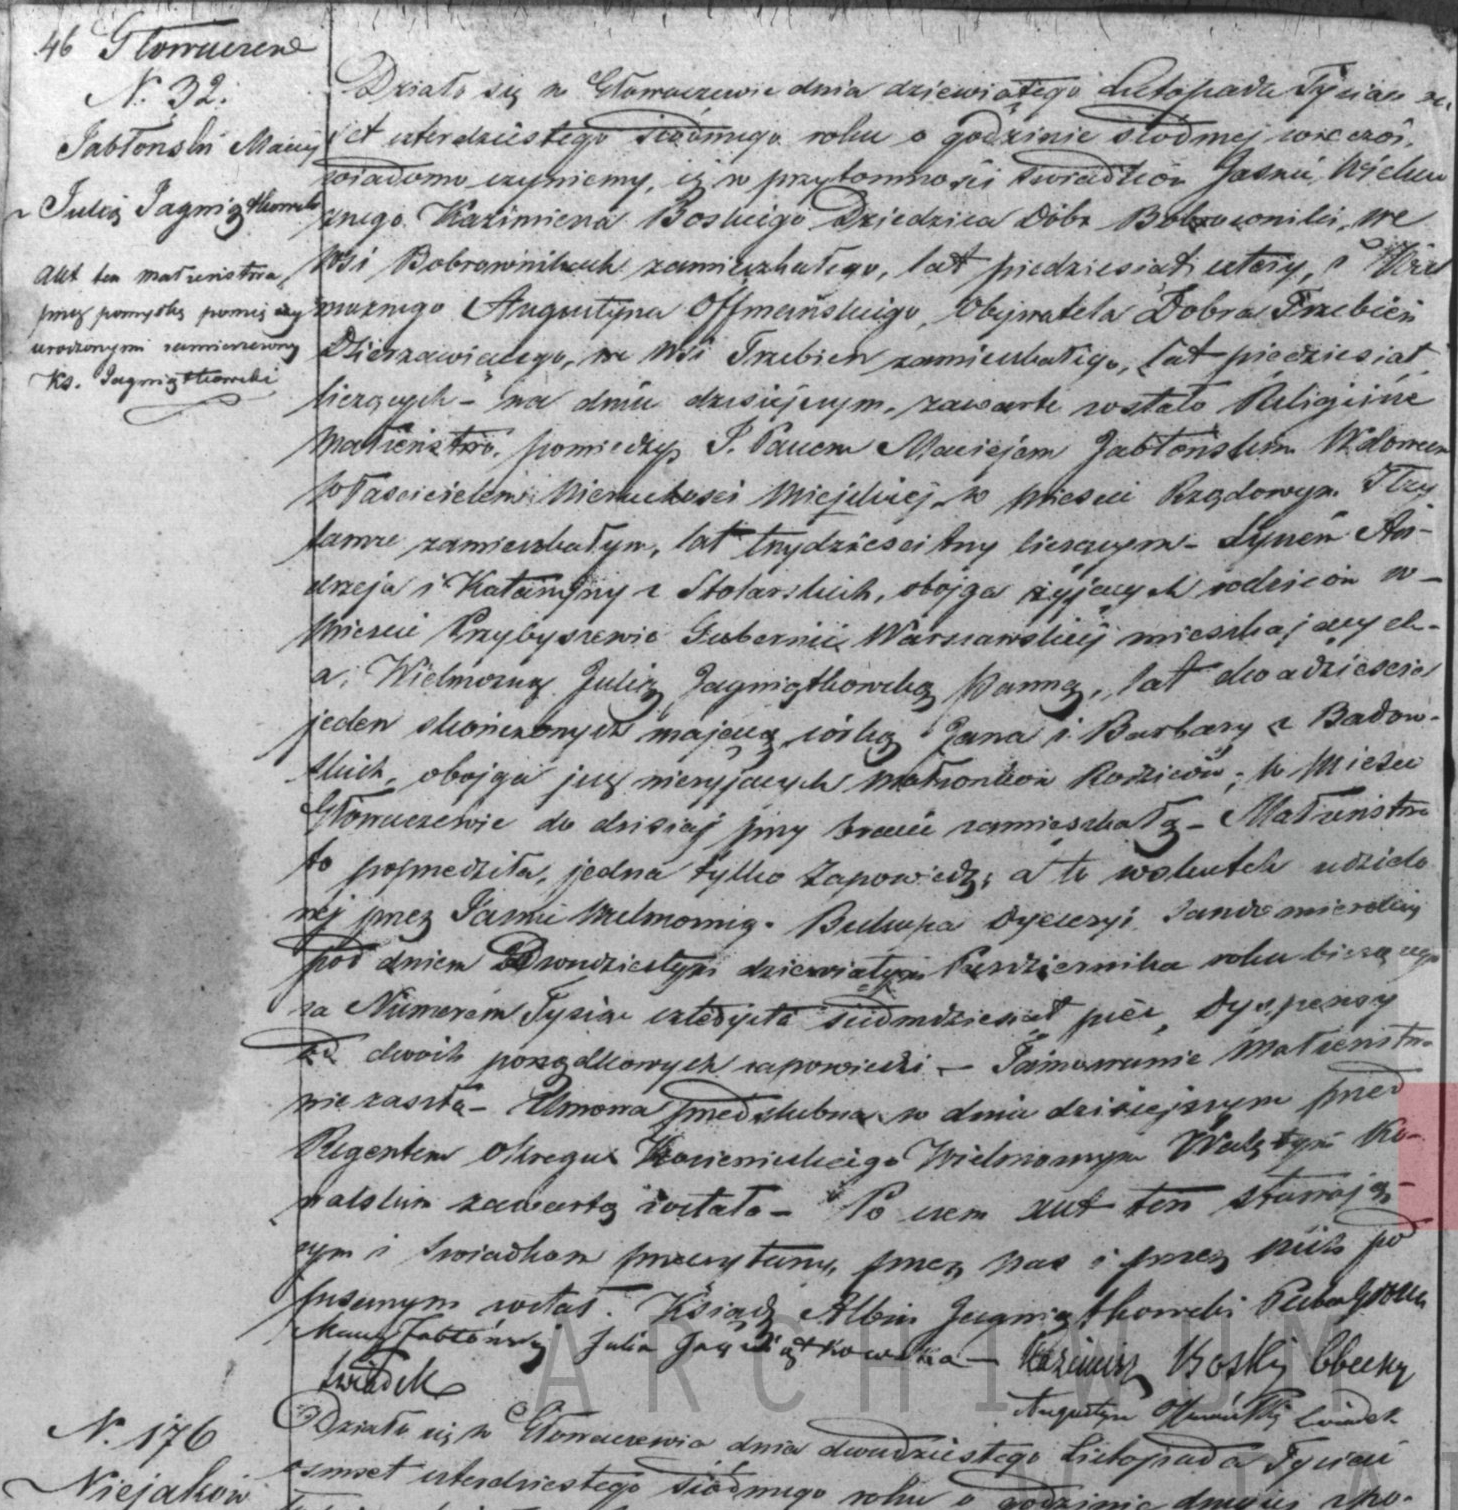 46 Głowaczew
N. 32.
Jabłoński Maciej
z Julią Jagniątkowską
Akt ten małżeństwa
przez pomyłkę pomiędzy
urodzonymi zamieszczony
Ks. Jagniątkowski
Działo się w Głowaczewie dnia dziewiątego Listopada Tysiąc
set czterdziestego siódmego roku o godzinie siódmej wieczór.
wiadomo czyniemy, iż w przytomności świadków Jaśnie Wielmo
żnego Kazimierza Boskiego Dziedzica Dóbr Bobrowniki, we
Wsi Bobrownikach zamieszkałego, lat piedziesiąt cztery, i Wiel
możnego Augustyna Offmańskiego, Obywatela Dobra Trzebień
Dzierzawiącego, we Wsi Trzebień zamieszkałego, lat piędziesiąt
liczących – na dniu dzisiejszym, zawarte zostało Religijne
Małżeństwo, pomiędzy J. Panem Maciejem Jabłońskim Wdowcem
Właścicielem Nieruchości Miejskiej, w Mieście Rządowym
zamieszkałym, lat trzydzieści trzy liczącym – Synem An-
drzeja i Katarzyny z Stolarskich, obojga żyjących rodziców w –
Mieście Przybyszewie Gubernii Warszawskiej mieszkających –
a, Wielmożną Julią Jagniątkowską Panną, lat dwadzieścia
jeden skończonych mającą, córką Jana i Barbary z Badow-
skich, obojga już nieżyjących małżonków Rodziców; w Mieście
Głowaczewie do dzisiaj przy bracie zamieszkałą – Małżeństwo
to poprzedziła, jedna tylko Zapowiedź, a to wskutek udzielo
nej przez Jaśnie Wielmożnego Biskupa Dyecezyi Sandomierskiej
pod dniem Dwudziestym dziewiątym Pazdziernika roku bieżącego
za Numerem Tysiąc czterysta siedmdziesiąt pięć, Dyspensy
od dwóch porządkowych zapowiedzi – Tamowanie Małżeństwa
nie zaszło – Umowa przedślubna w dniu dzisiejszym przed
Regentem Okręgu Kozienickiego Wielmożnym Walętym Ko-
walskim zawartą została – Po czem akt ten stawają-
cym i świadkom przeczytany, przez nas i przez nich pod
pisanym został. Ksiądz Albin Jagniątkowski
Maciej Jabłoński Julia Jagniątkowska – Kazimierz Boski Obecny
świadek
Augustyn Offmański Świadek
N. 176
Niejaków
Działo się w Głowaczewie, dnia dwudziestego Listopada Tysiąc
osmset czterdziestego siódmego roku o godzinie
ARCHIWUM